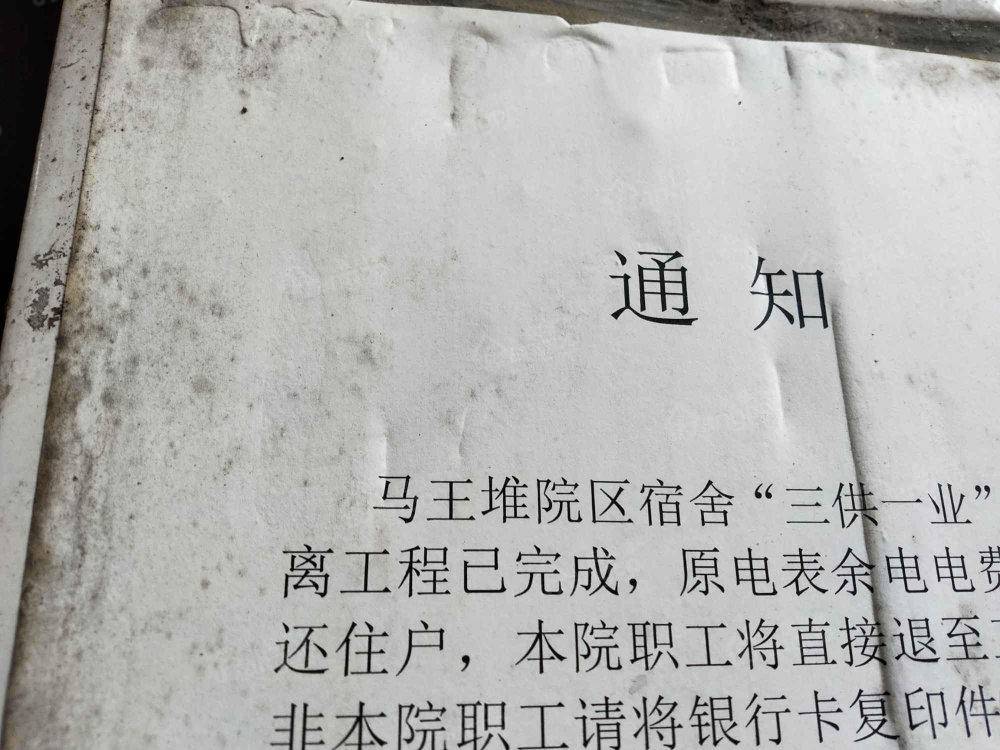 通 知
马王堆院区宿舍“三供一业”
离工程已完成，原电表余电电费
还住户，本院职工将直接退至
非本院职工请将银行卡复印件